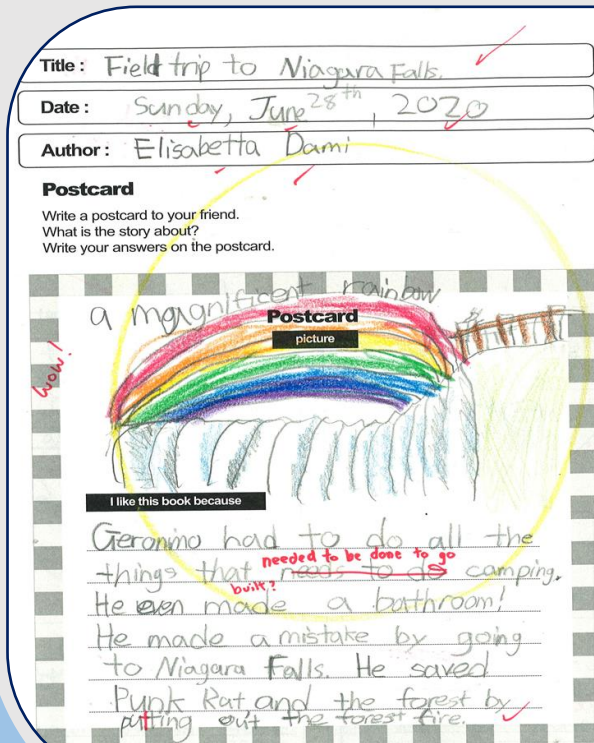 Title : Field trip to Niagara Falls.
Date : Sunday, June 28th, 2020
Author : Elisabetta Dami
Postcard
Write a postcard to your friend.
What is the story about?
Write your answers on the postcard.
a magnificent rainbow
Postcard
picture
Wow!
I like this book because
Geronimo had to do all the
needed to be done to go
things that needs to do camping.
built?
He even made a bathroom!
He made a mistake by going
to Niagara Falls. He saved
Punk Rat, and the forest by
putting out the forest fire.